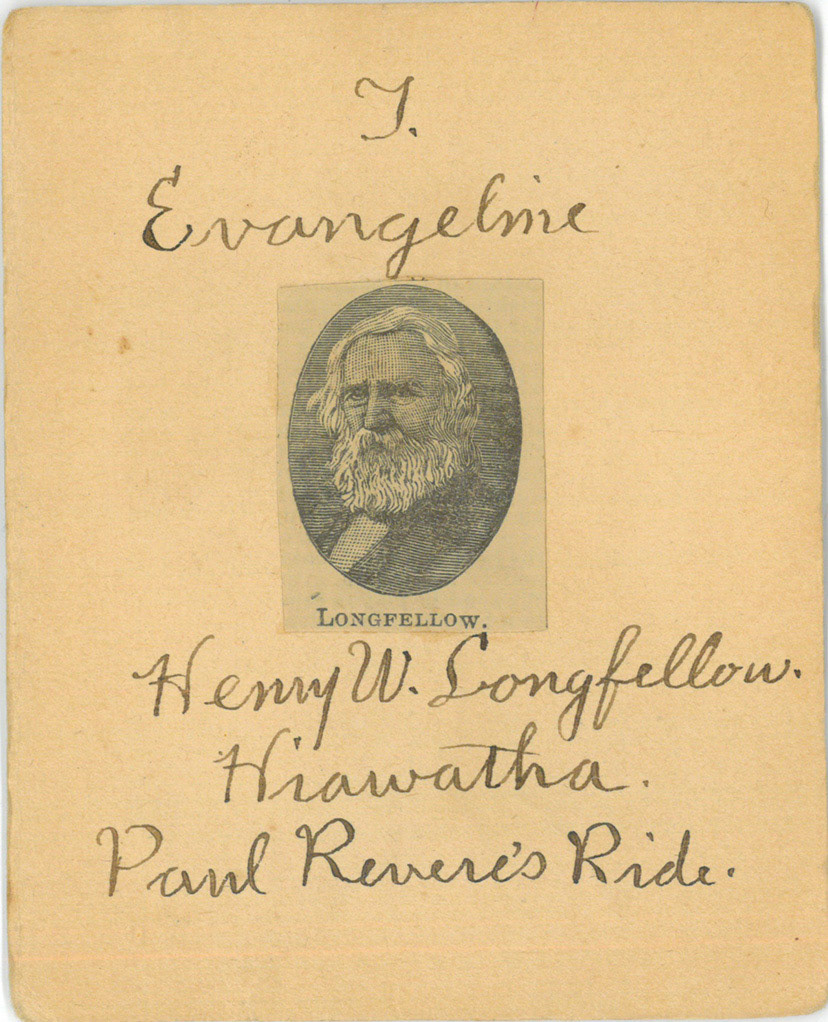 I.
Evangeline
LONGFELLOW.
Henry W. Longfellow.
Hiawatha.
Paul Revere's Ride.